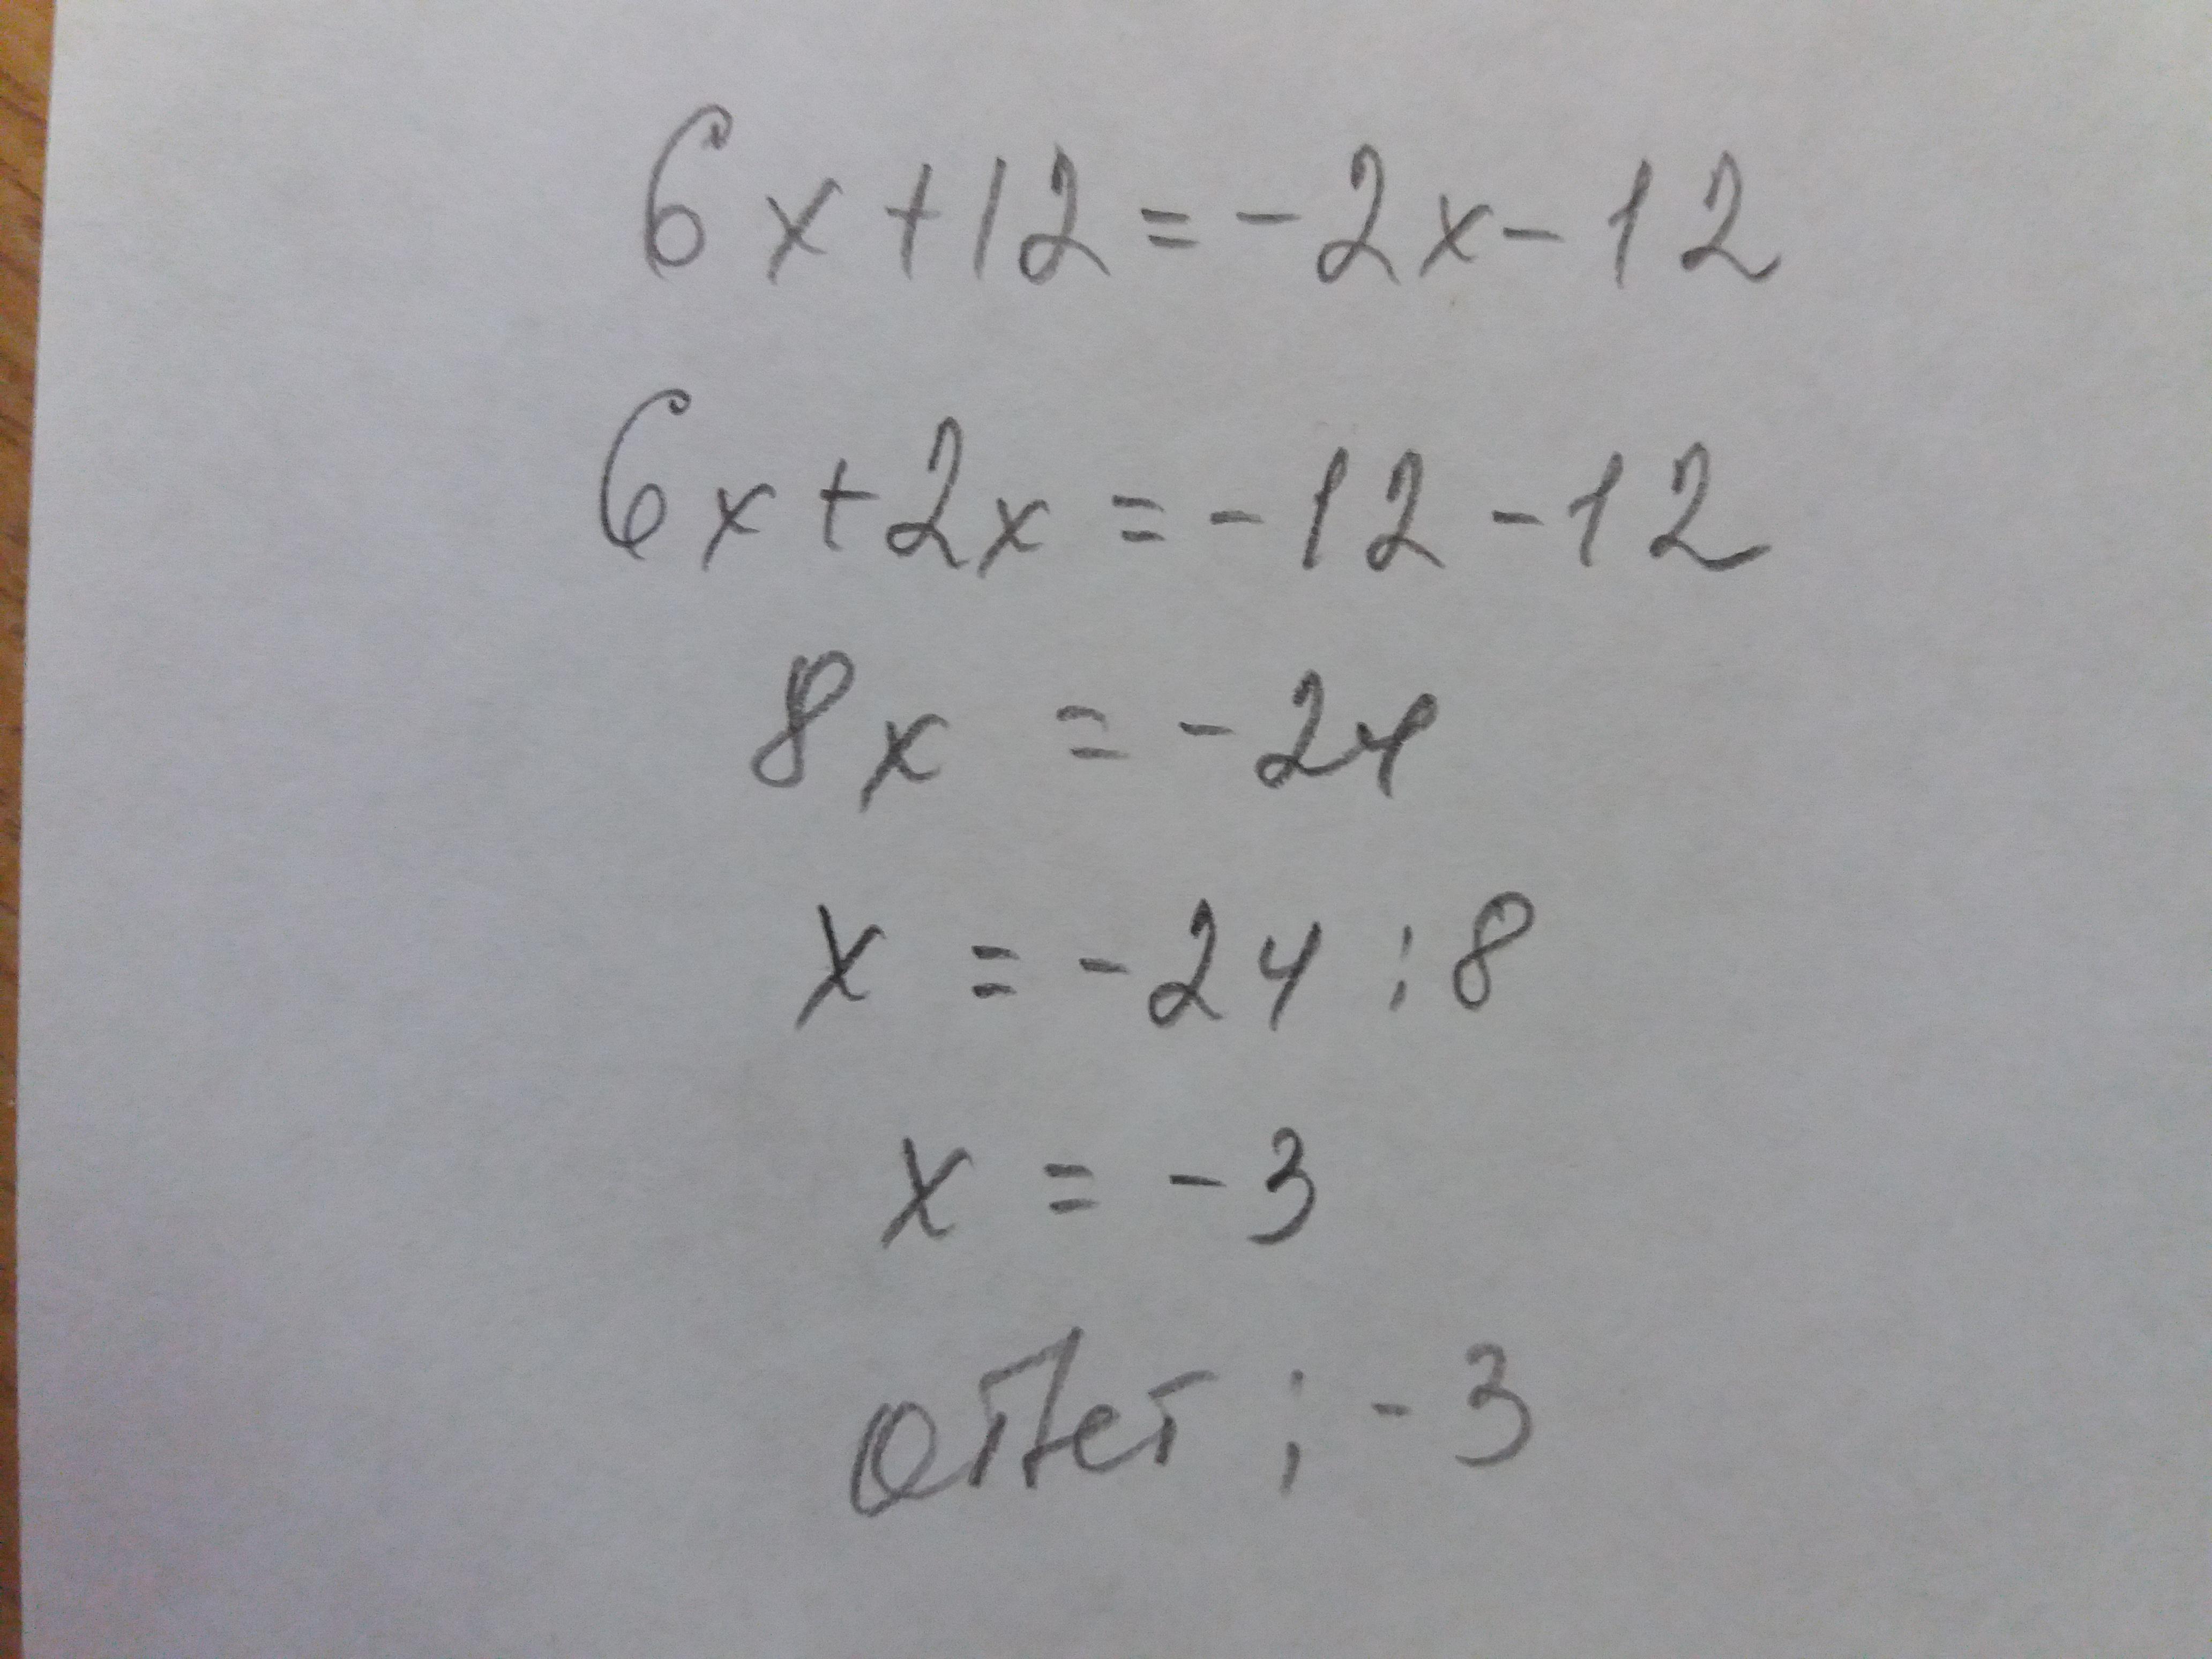 6x+12=-2x-12
6x+2x=-12-12
8x=-24
x=-24:8
x=-3
ответ:-3